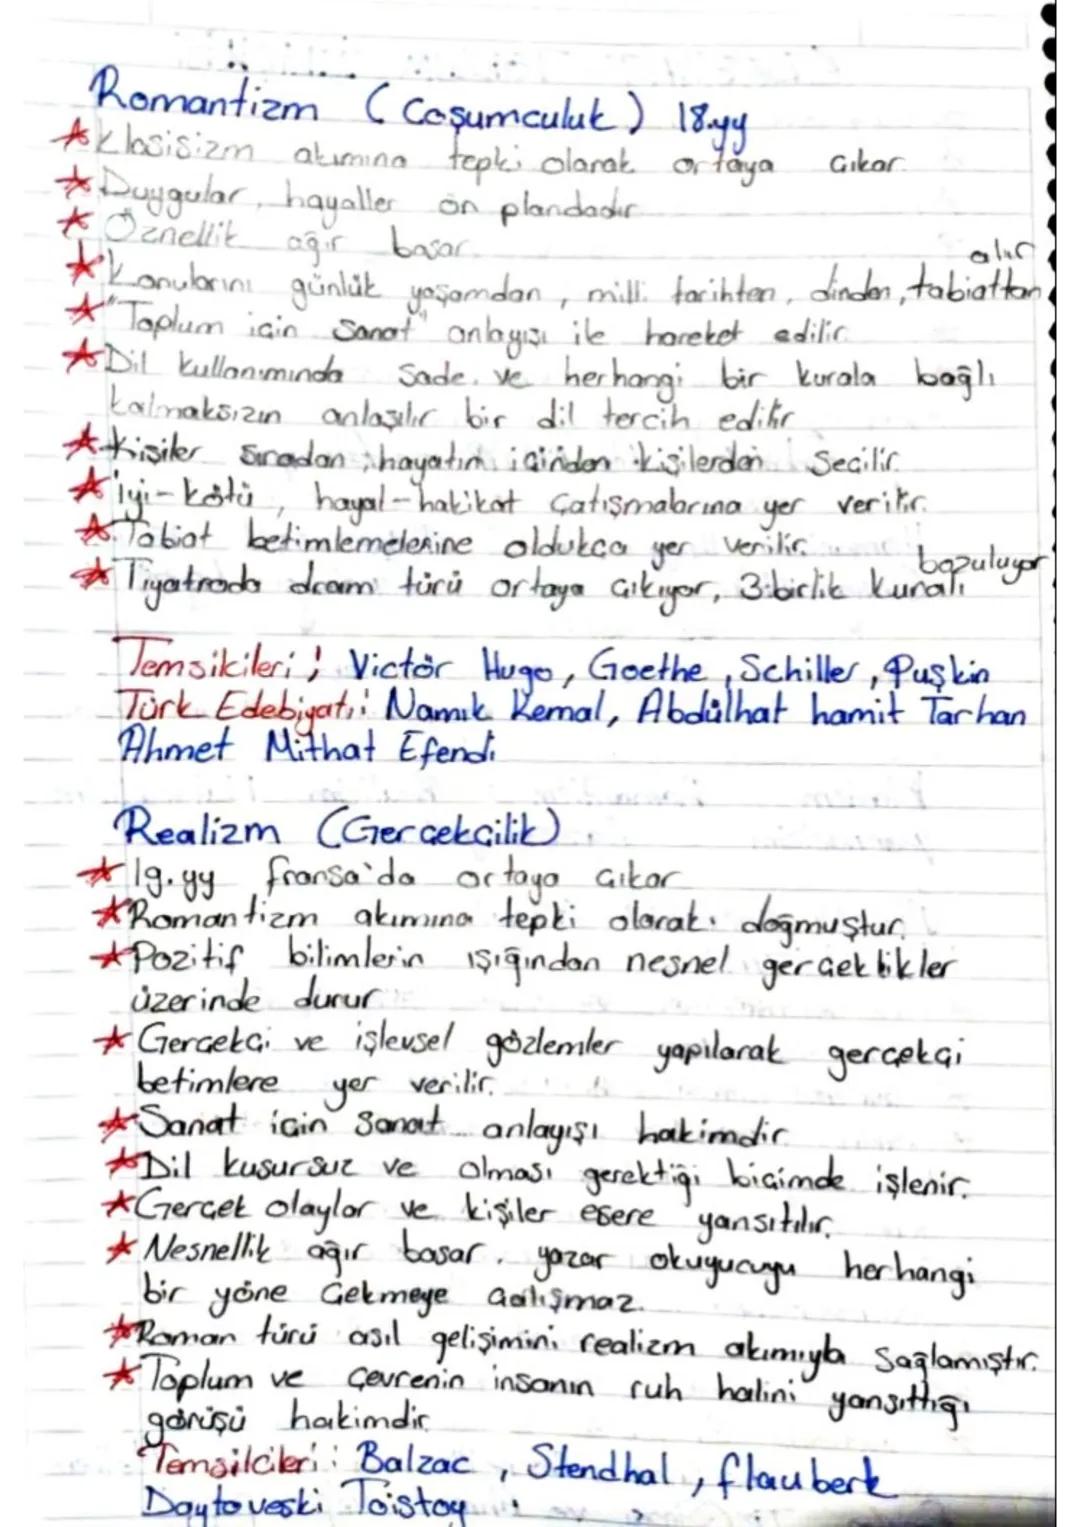 Romantizm (Coşumculuk) 18.yy
★ Klasisizm akımına tepki olarak ortaya çıkar.
★ Duygular, hayaller ön plandadır
★ Öznellik ağır basar.
★ Konularını günlük yaşamdan, milli tarihten, dinden, tabiattan alır
★ "Toplum için Sanat" anlayışı ile hareket edilir.
★ Dil kullanımında sade ve herhangi bir kurala bağlı
kalmaksızın anlaşılır bir dil tercih edilir
★ Kişiler sıradan, hayatın içinden kişilerden seçilir.
★ İyi-kötü, hayal-hakikat çatışmalarına yer verilir.
★ Tabiat betimlemelerine oldukça yer verilir.
★ Tiyatroda dram türü ortaya çıkıyor, 3 birlik kuralı bozuluyor
Temsikileri; Victör Hugo, Goethe, Schiller, Puşkin
Türk Edebiyatı: Namık Kemal, Abdülhat hamit Tarhan
Ahmet Mithat Efendi
Realizm (Gerçekçilik)
★ 19.yy fransa'da ortaya çıkar
★ Romantizm akımına tepki olarak doğmuştur.
★ Pozitif bilimlerin ışığından nesnel gerçeklikler
üzerinde durur
★ Gerçekçi ve işlevsel gözlemler yapılarak gerçekçi
betimlere yer verilir.
★ Sanat için sanat anlayışı hakimdir.
★ Dil kusursuz ve olması gerektiği biçimde işlenir.
★ Gerçek olaylar ve kişiler esere yansıtılır.
★ Nesnellik ağır basar, yazar okuyucuyu herhangi
bir yöne çekmeye çalışmaz.
★ Roman türü asıl gelişimini realizm akımıyla sağlamıştır.
★ Toplum ve çevrenin insanın ruh halini yansıttığı
görüşü hakimdir.
Temsilcileri: Balzac, Stendhal, flaubert
Daytoveski Toistoy